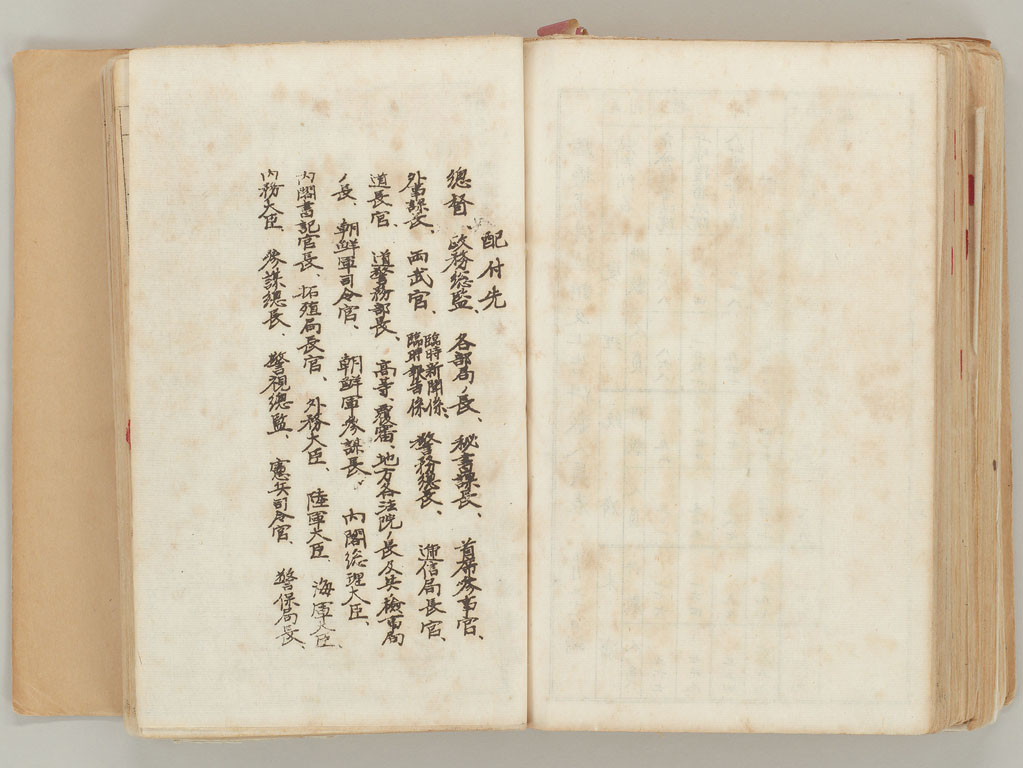 配付先
總督、政務総監、各部局ノ長、秘書課長、首席参事官、
外事課長、両武官、臨時新聞係、臨時報告係、警務總長、逓信局長官、
道長官、道警務部長、高等、覆審、地方各法院ノ長及其檢事局
ノ長、朝鮮軍司令官、朝鮮軍参謀長、内閣総理大臣、
内閣書記官長、拓殖局長官、外務大臣、陸軍大臣、海軍大臣、
内務大臣、参謀總長、警視總監、憲兵司令官、警保局長、